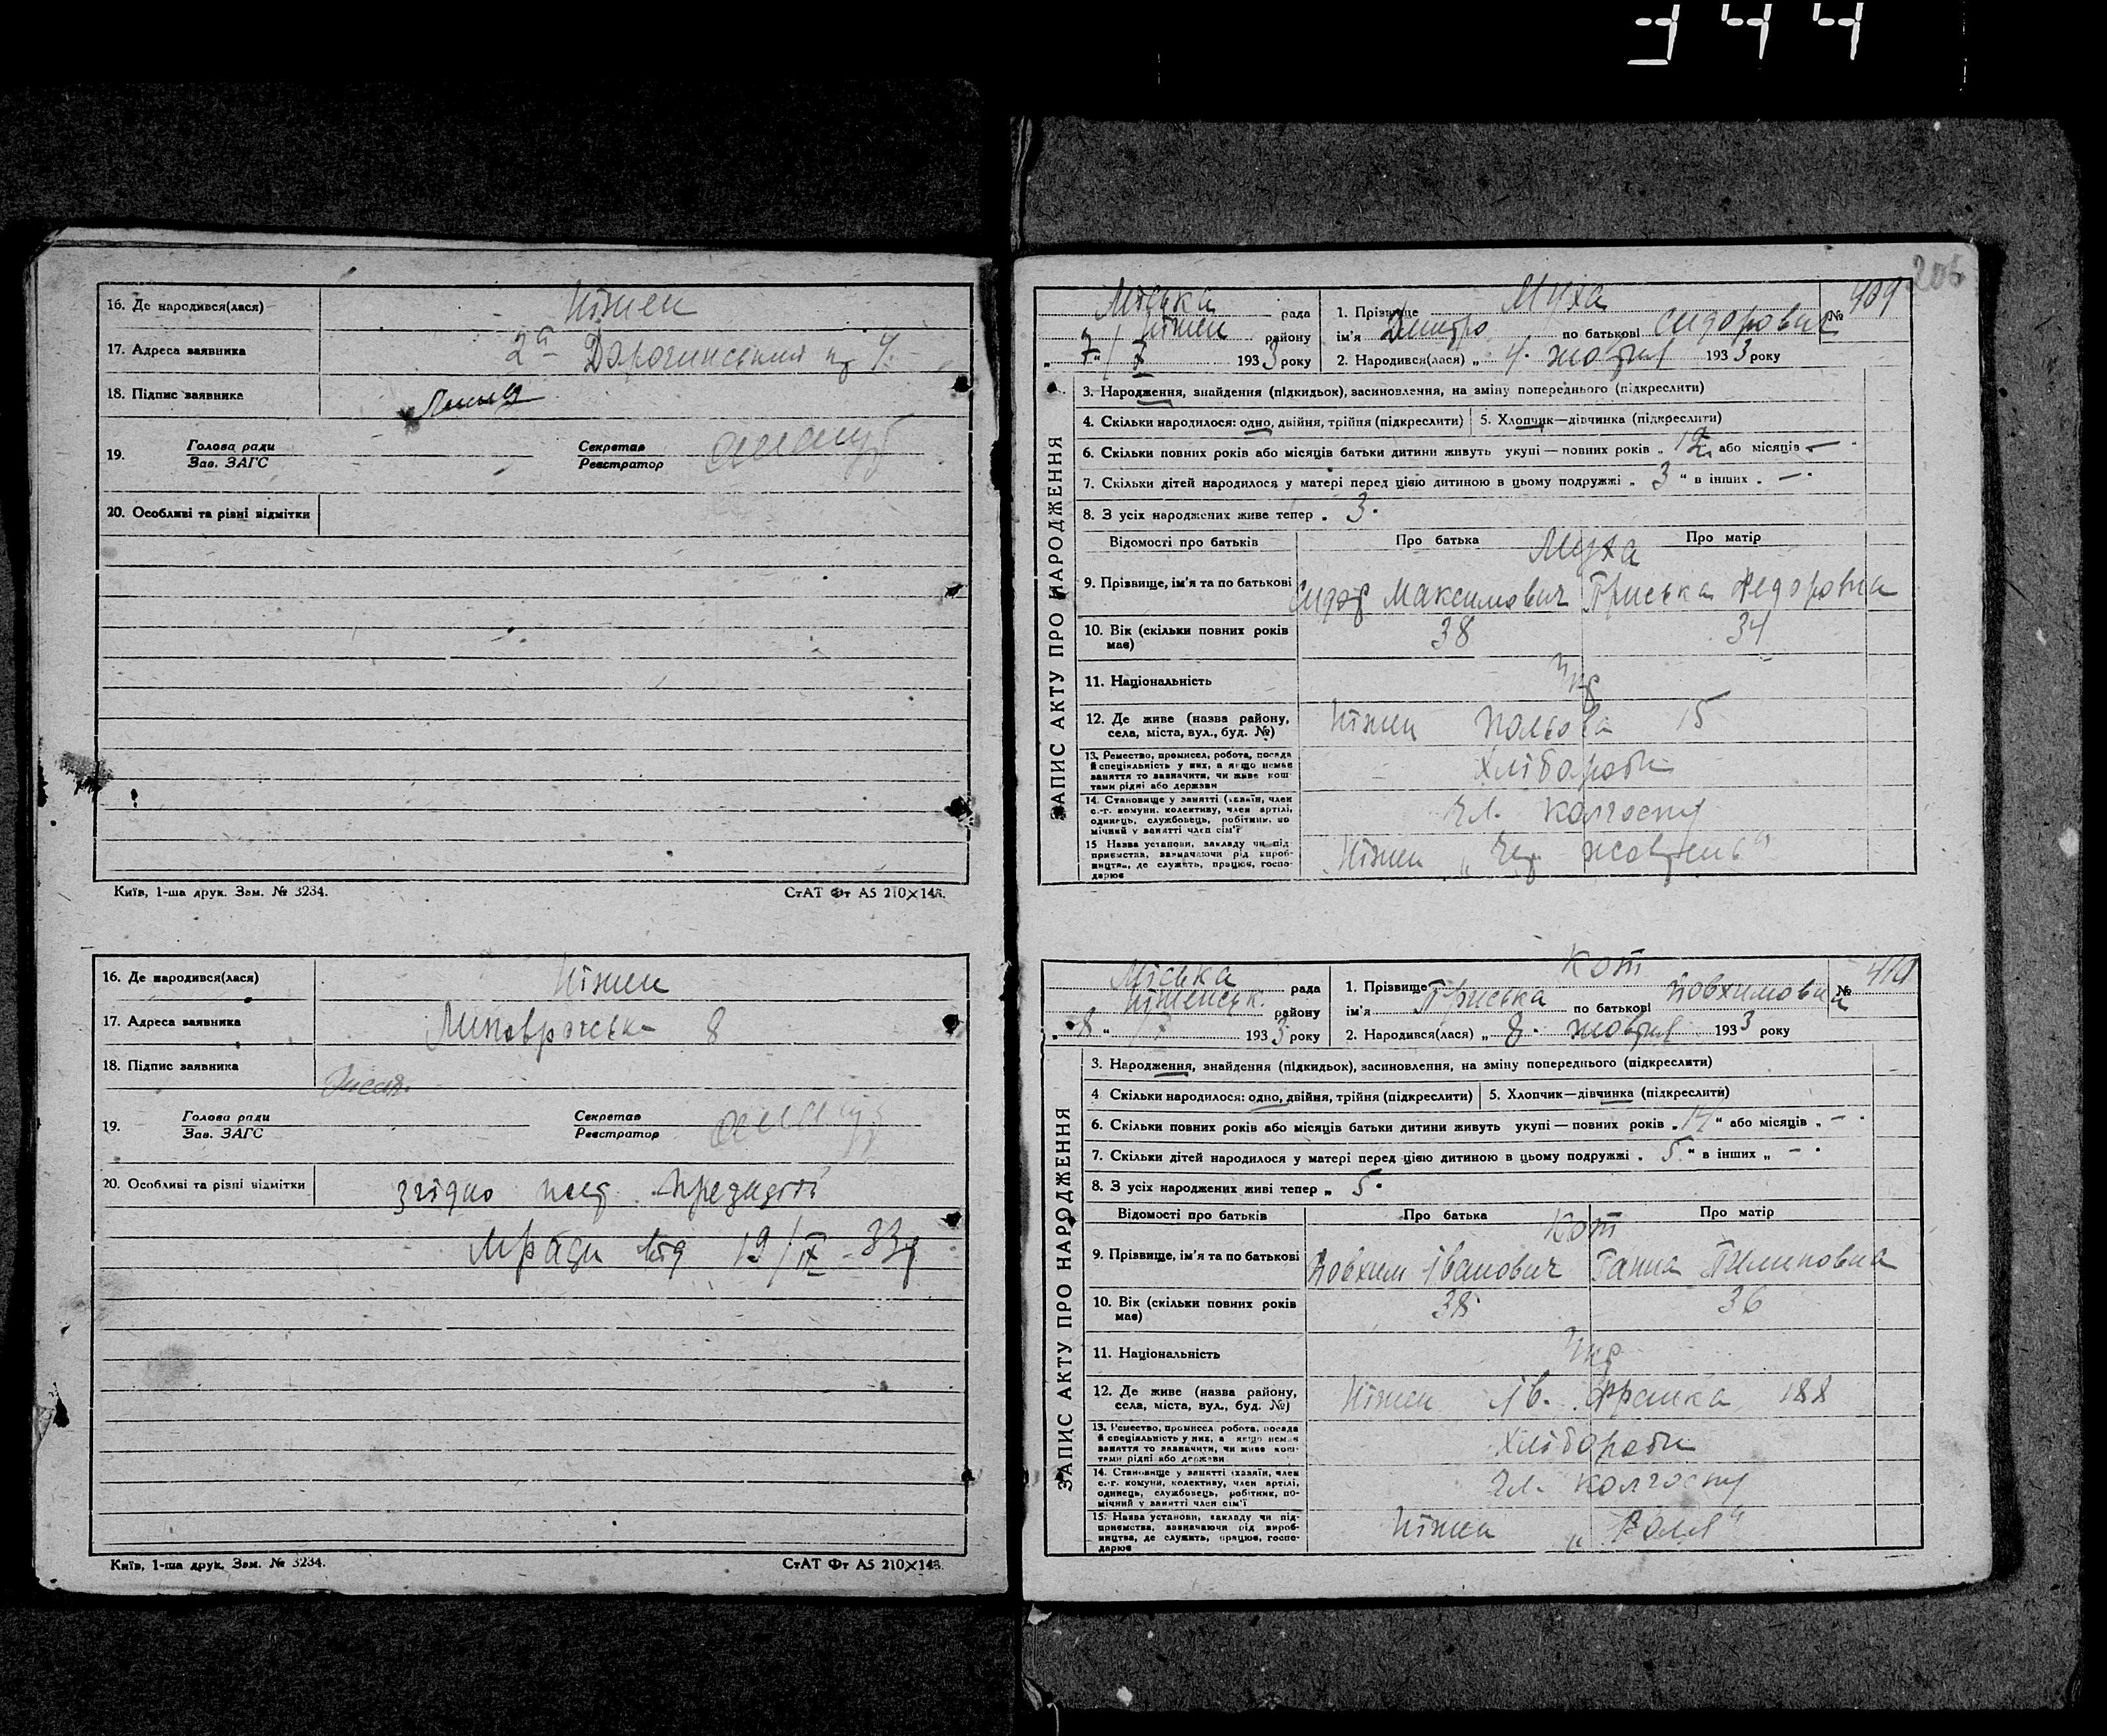 344
16. Де народився(лася)
Ніжен
17. Адреса заявника
2а Дорогинський 4.
18. Підпис заявника
19.
Голова ради
Зав. ЗАГС
Секретар
Реєстратор
20. Особливі та різні відмітки
Київ, 1-ша друк. Зам. № 3234.
СтАТ Фт А5 210×148.
16. Де народився(лася)
Ніжен
17. Адреса заявника
8
18. Підпис заявника
19.
Голова ради
Зав. ЗАГС
Секретар
Реєстратор
20. Особливі та різні відмітки
згідно пост. президії
Мради від 19/IX-33р
Київ, 1-ша друк. Зам. № 3234.
СтАТ Фт А5 210×148.
205
ЗАПИС АКТУ ПРО НАРОДЖЕННЯ
Міська рада
Ніжен району
„ 7 “ / X 1933 року
1. Прізвище Муха
№ 409
ім'я Дмитро по батькові Сидорович
2. Народився(лася) „ 4. жовтня 1933 року
3. Народження, знайдення (підкидьок), засиновлення, на зміну попереднього (підкреслити)
4. Скільки народилося: одно, двійня, трійня (підкреслити)
5. Хлопчик—дівчинка (підкреслити)
6. Скільки повних років або місяців батьки дитини живуть укупі — повних років „ 12 або місяців —
7. Скільки дітей народилося у матері перед цією дитиною в цьому подружжі „ 3 “ в інших „ —
8. З усіх народжених живе тепер „ 3.
Відомості про батьків
Про батька
Про матір
Муха
9. Прізвище, ім'я та по батькові
Сидор Максимович
Пріська Федоровна
10. Вік (скільки повних років має)
38
34
11. Національність
Укр
12. Де живе (назва району, села, міста, вул., буд. №)
Ніжен Польова 15
13. Ремество, промисел, робота, посада й спеціяльність у них, а якщо немає заняття то зазначити, чи живе коштами рідні або держави
Хлібороби
14. Становище у занятті (хазяїн, член с.-г. комуни, колективу, член артілі, одинець, службовець, робітник, помічний у занятті член сім'ї
Чл. колгоспу
15 Назва установи, закладу чи підприємства, зазначаючи рід виробництва, де служить, працює, господарює
Ніжен „Чер жовтень“
ЗАПИС АКТУ ПРО НАРОДЖЕННЯ
Міська рада
Ніженськ. району
„ 8 “ X 1933 року
1. Прізвище Кот
№ 410
ім'я Пріська по батькові Йовхимовна
2. Народився(лася) „ 8. жовтня 1933 року
3. Народження, знайдення (підкидьок), засиновлення, на зміну попереднього (підкреслити)
4 Скільки народилося: одно, двійня, трійня (підкреслити)
5. Хлопчик—дівчинка (підкреслити)
6. Скільки повних років або місяців батьки дитини живуть укупі — повних років „ 14 “ або місяців „ —
7. Скільки дітей народилося у матері перед цією дитиною в цьому подружжі . 5 “ в інших „ —
8. З усіх народжених живі тепер „ 5.
Відомості про батьків
Про батька
Про матір
Кот
9. Прізвище, ім'я та по батькові
Йовхим Іванович
Ганна Пилиповна
10. Вік (скільки повних років має)
38
36
11. Національність
Укр
12. Де живе (назва району, села, міста, вул., буд. №)
Ніжен Ів. Франка 188
13. Ремество, промисел робота, посада й спеціяльність у них, а якщо немає заняття то зазначити, чи живе коштами рідні або держави
Хлібороби
14. Становище у занятті (хазяїн, член с.-г. комуни, колективу, член артілі, одинець, службовець, робітник, помічний у занятті член сім'ї
Чл. колгоспу
15. Назва установи, закладу чи підприємства, зазначаючи рід виробництва, де служить, працює, господарює
Ніжен „Воля“